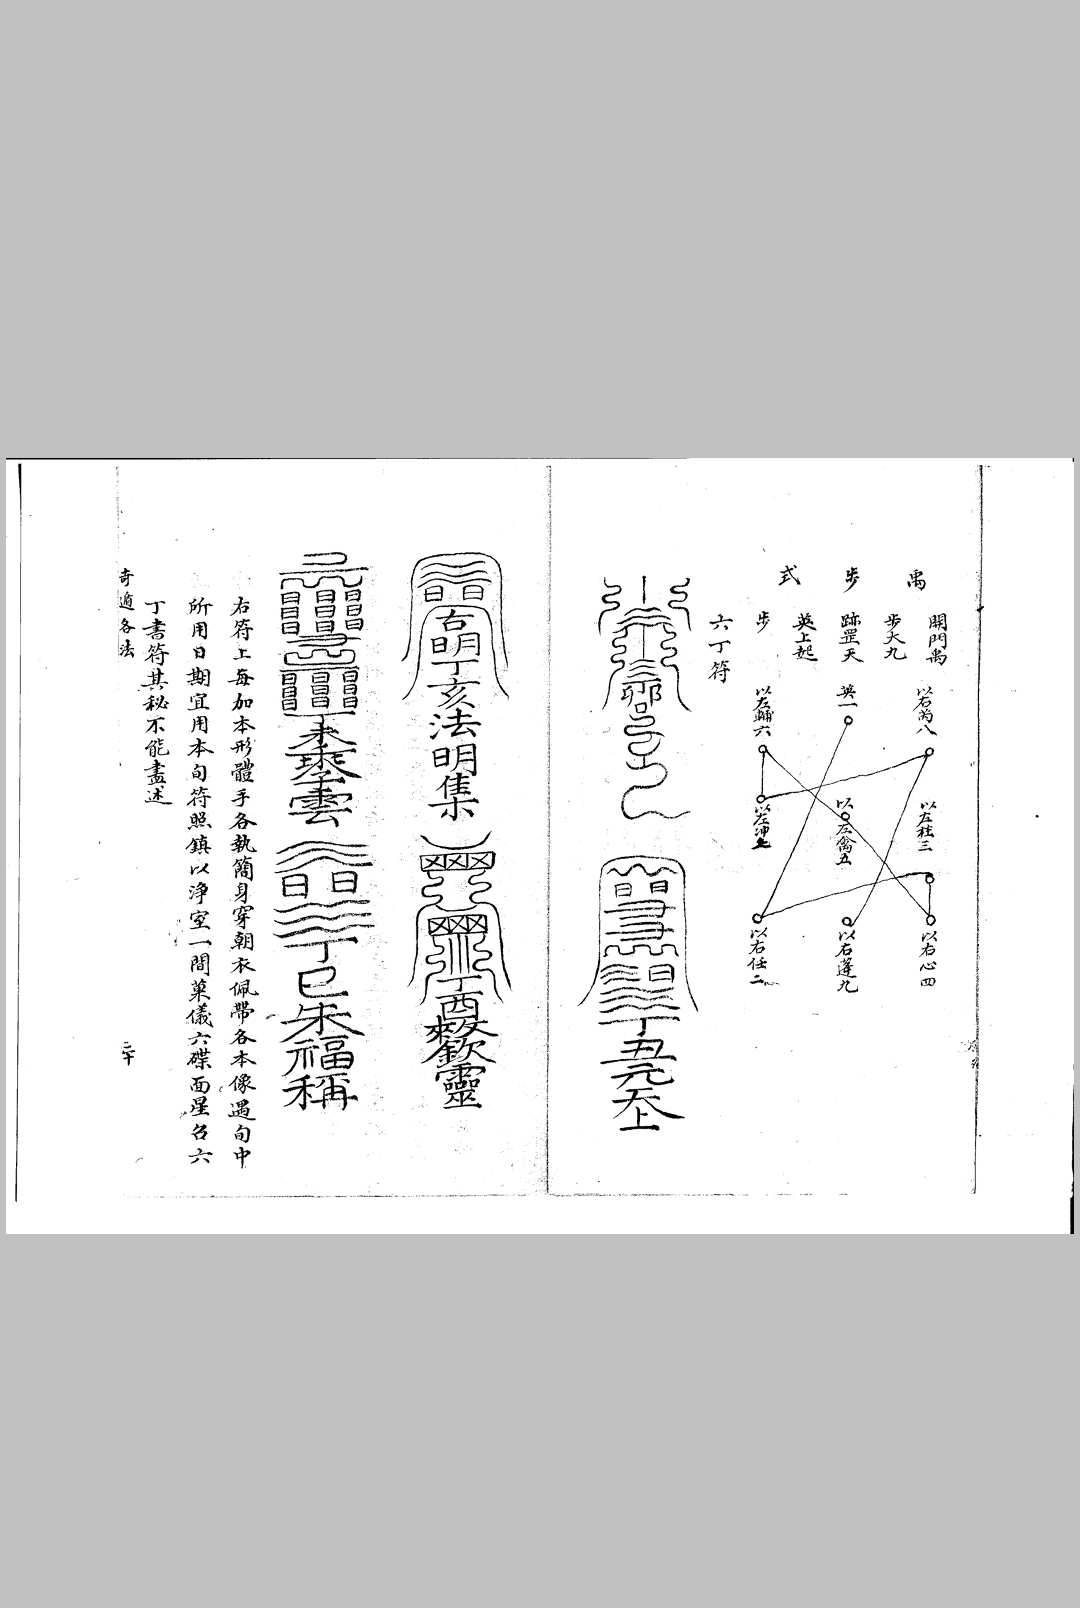 禹步式
開門禹
步天九
跡罡天
英上起
步
以右芮八
英一
以左輔六
以左柱三
以左禽五
以左冲七
以右心四
以右蓬九
以右任二
六丁符
丁丑元天上
右明丁亥法明集
丁酉
欽靈
丁未
雲
丁巳朱福稱
右符上每加本形體手各執簡身穿朝衣佩帶各本像遇旬中
所用日期宜用本旬符照鎮以淨室一間菓儀六碟面星名六
丁書符其秘不能盡述
奇遁各法
二十